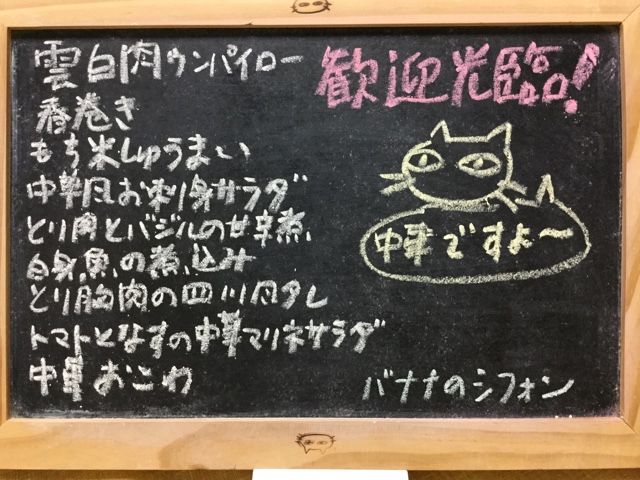 雲白肉ウンパイロー
春巻き
もち米しゅうまい
中華風お刺身サラダ
とり肉とバジルの甘辛煮
白身魚の煮込み
とり胸肉の四川風タレ
トマトとなすの中華マリネサラダ
中華おこわ
歓迎光臨!
中華ですよ〜
バナナのシフォン